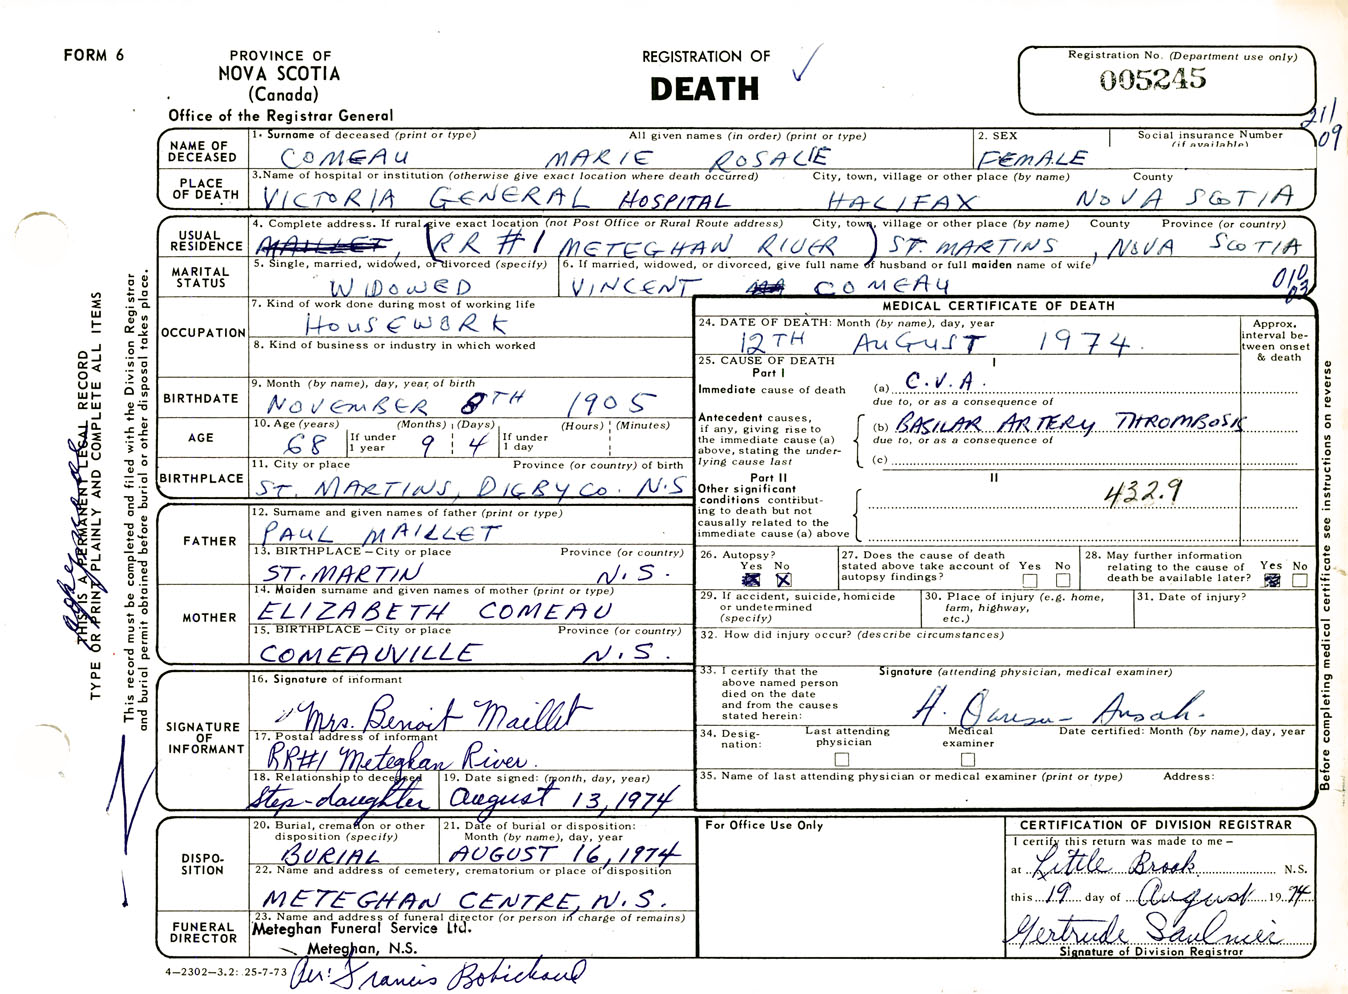 FORM 6
PROVINCE OF
NOVA SCOTIA
(Canada)
Office of the Registrar General
REGISTRATION OF
DEATH
Registration No. (Department use only)
005245
211
09
NAME OF
DECEASED
1. Surname of deceased (print or type) All given names (in order) (print or type)
COMEAU MARIE ROSALIE
2. SEX
FEMALE
Social insurance Number
(if available)
PLACE
OF DEATH
3. Name of hospital or institution (otherwise give exact location where death occurred) City, town, village or other place (by name) County
VICTORIA GENERAL HOSPITAL HALIFAX NOVA SCOTIA
USUAL
RESIDENCE
4. Complete address. If rural give exact location (not Post Office or Rural Route address) City, town, village or other place (by name) County Province (or country)
MAILLET, (RR #1 METEGHAN RIVER) ST. MARTINS, NOVA SCOTIA
MARITAL
STATUS
5. Single, married, widowed, or divorced (specify)
WIDOWED
6. If married, widowed, or divorced, give full name of husband or full maiden name of wife
VINCENT COMEAU
010
03
OCCUPATION
7. Kind of work done during most of working life
HOUSEWORK
8. Kind of business or industry in which worked
BIRTHDATE
9. Month (by name), day, year of birth
NOVEMBER 8TH 1905
AGE
10. Age (years) (Months) (Days) (Hours) (Minutes)
68 If under 1 year 9 4 If under 1 day
BIRTHPLACE
11. City or place Province (or country) of birth
ST. MARTINS, DIGBY CO. N.S
FATHER
12. Surname and given names of father (print or type)
PAUL MAILLET
13. BIRTHPLACE – City or place Province (or country)
ST. MARTIN N.S.
MOTHER
14. Maiden surname and given names of mother (print or type)
ELIZABETH COMEAU
15. BIRTHPLACE – City or place Province (or country)
COMEAUVILLE N.S.
SIGNATURE
OF
INFORMANT
16. Signature of informant
Mrs. Benoit Maillet
17. Postal address of informant
RR#1 Meteghan River.
18. Relationship to deceased
Step-daughter
19. Date signed: (month, day, year)
August 13, 1974
DISPO-
SITION
20. Burial, cremation or other
disposition (specify)
BURIAL
21. Date of burial or disposition:
Month (by name), day, year
AUGUST 16, 1974
22. Name and address of cemetery, crematorium or place of disposition
METEGHAN CENTRE, N.S.
FUNERAL
DIRECTOR
23. Name and address of funeral director (or person in charge of remains)
Meteghan Funeral Service Ltd.
Meteghan, N.S.
Per: Francis Robichaud
4–2302–3.2: 25-7-73
MEDICAL CERTIFICATE OF DEATH
24. DATE OF DEATH: Month (by name), day, year
12TH AUGUST 1974.
Approx.
interval be-
tween onset
& death
25. CAUSE OF DEATH
Part I
I
Immediate cause of death
(a) C.V.A.
due to, or as a consequence of
Antecedent causes,
if any, giving rise to
the immediate cause (a)
above, stating the under-
lying cause last
(b) BASILAR ARTERY THROMBOSIS
due to, or as a consequence of
(c)
Part II
II
Other significant
conditions contribut-
ing to death but not
causally related to the
immediate cause (a) above
432.9
26. Autopsy?
Yes No
X
27. Does the cause of death
stated above take account of
autopsy findings?
Yes No
28. May further information
relating to the cause of
death be available later?
Yes No
29. If accident, suicide, homicide
or undetermined
(specify)
30. Place of injury (e.g. home,
farm, highway,
etc.)
31. Date of injury?
32. How did injury occur? (describe circumstances)
33. I certify that the
above named person
died on the date
and from the causes
stated herein:
Signature (attending physician, medical examiner)
34. Desig-
nation:
Last attending
physician
Medical
examiner
Date certified: Month (by name), day, year
35. Name of last attending physician or medical examiner (print or type) Address:
For Office Use Only
CERTIFICATION OF DIVISION REGISTRAR
I certify this return was made to me –
at Little Brook N.S.
this 19 day of August 1974
Gertrude Saulnier
Signature of Division Registrar
THIS IS A PERMANENT LEGAL RECORD
TYPE OR PRINT PLAINLY AND COMPLETE ALL ITEMS
This record must be completed and filed with the Division Registrar
and burial permit obtained before burial or other disposal takes place.
Before completing medical certificate see instructions on reverse